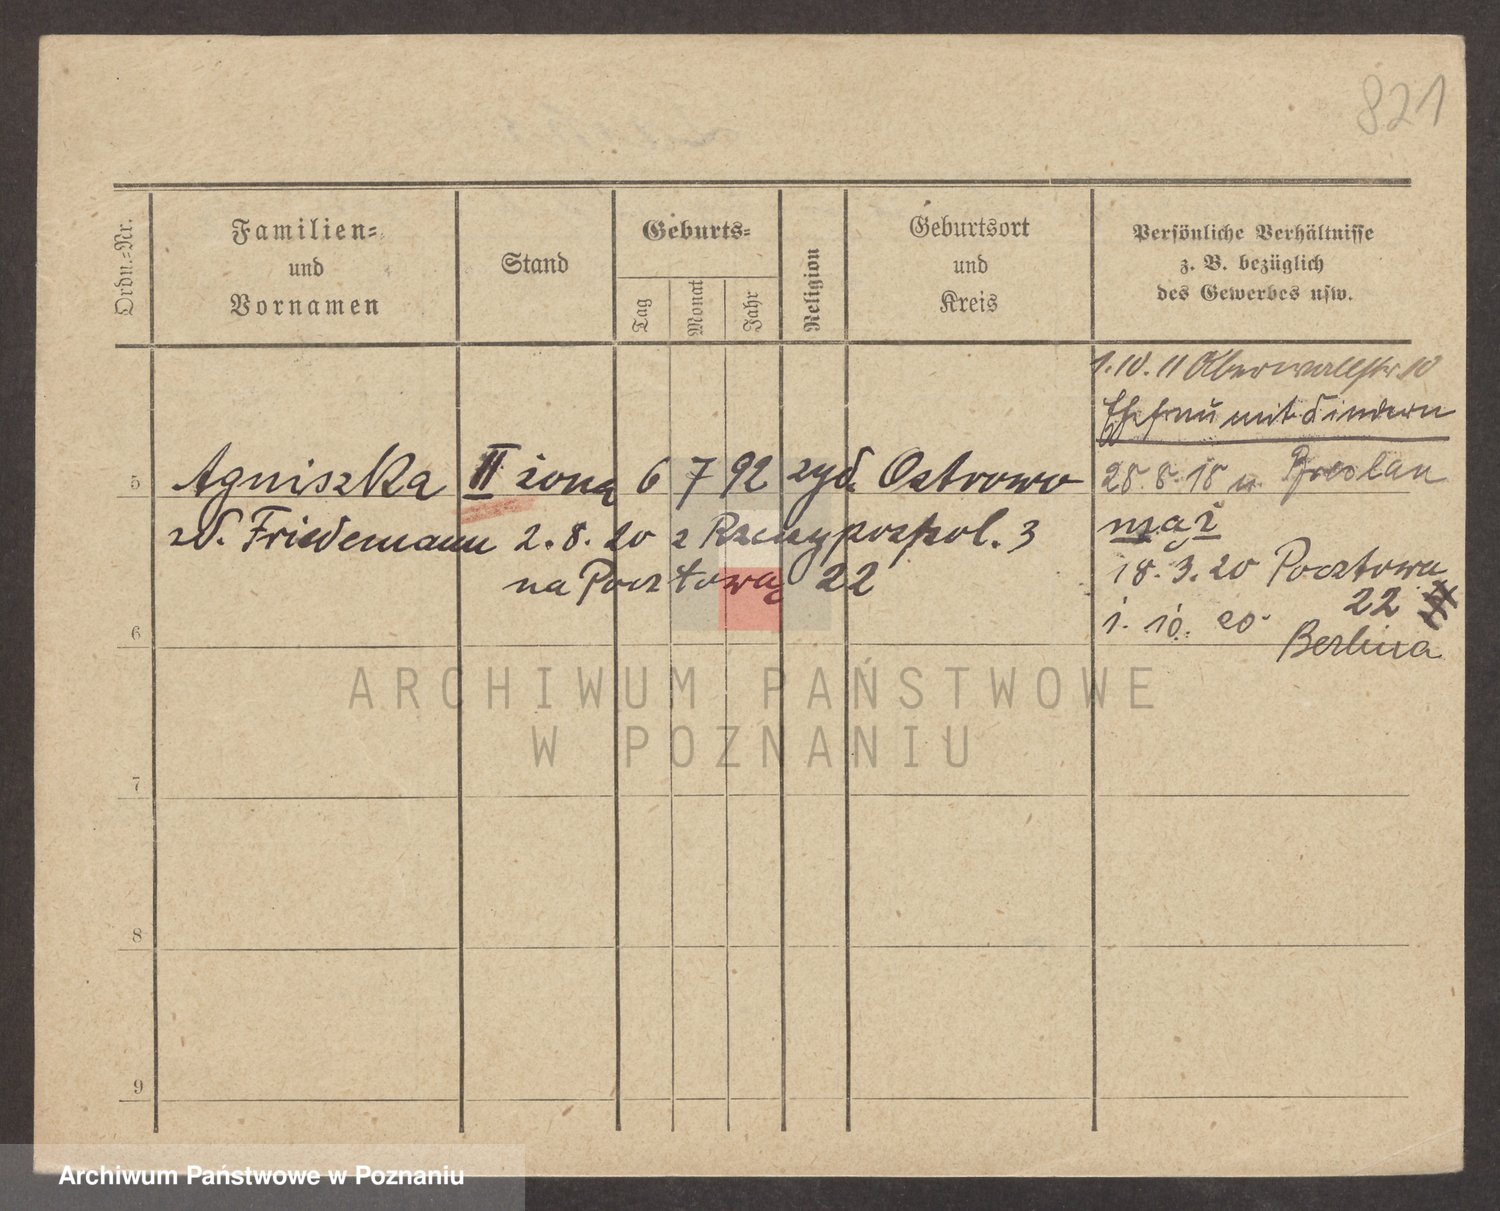 821
Ordn.-Nr.
Familien-
und
Vornamen
Stand
Geburts-
Tag
Monat
Jahr
Religion
Geburtsort
und
Kreis
Persönliche Verhältnisse
z. B. bezüglich
des Gewerbes usw.
1.10.11 Oberwallstr. 10
Ehefrau mit Kindern
5 Agniszka II żona 6 7 92 żyd. Ostrowo
28.8.18 n. Breslau
zd. Friedemann 2.8.20 z Rzeczypospol. 3
mąż
na Pocztową 22
18.3.20 Pocztowa
22
6
1. 10. 20.
Berlina
7
8
9
ARCHIWUM PAŃSTWOWE
W POZNANIU
Archiwum Państwowe w Poznaniu